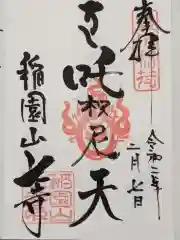 奉拝
令和二年
二月七日
吒枳尼天
稲園山
七寺